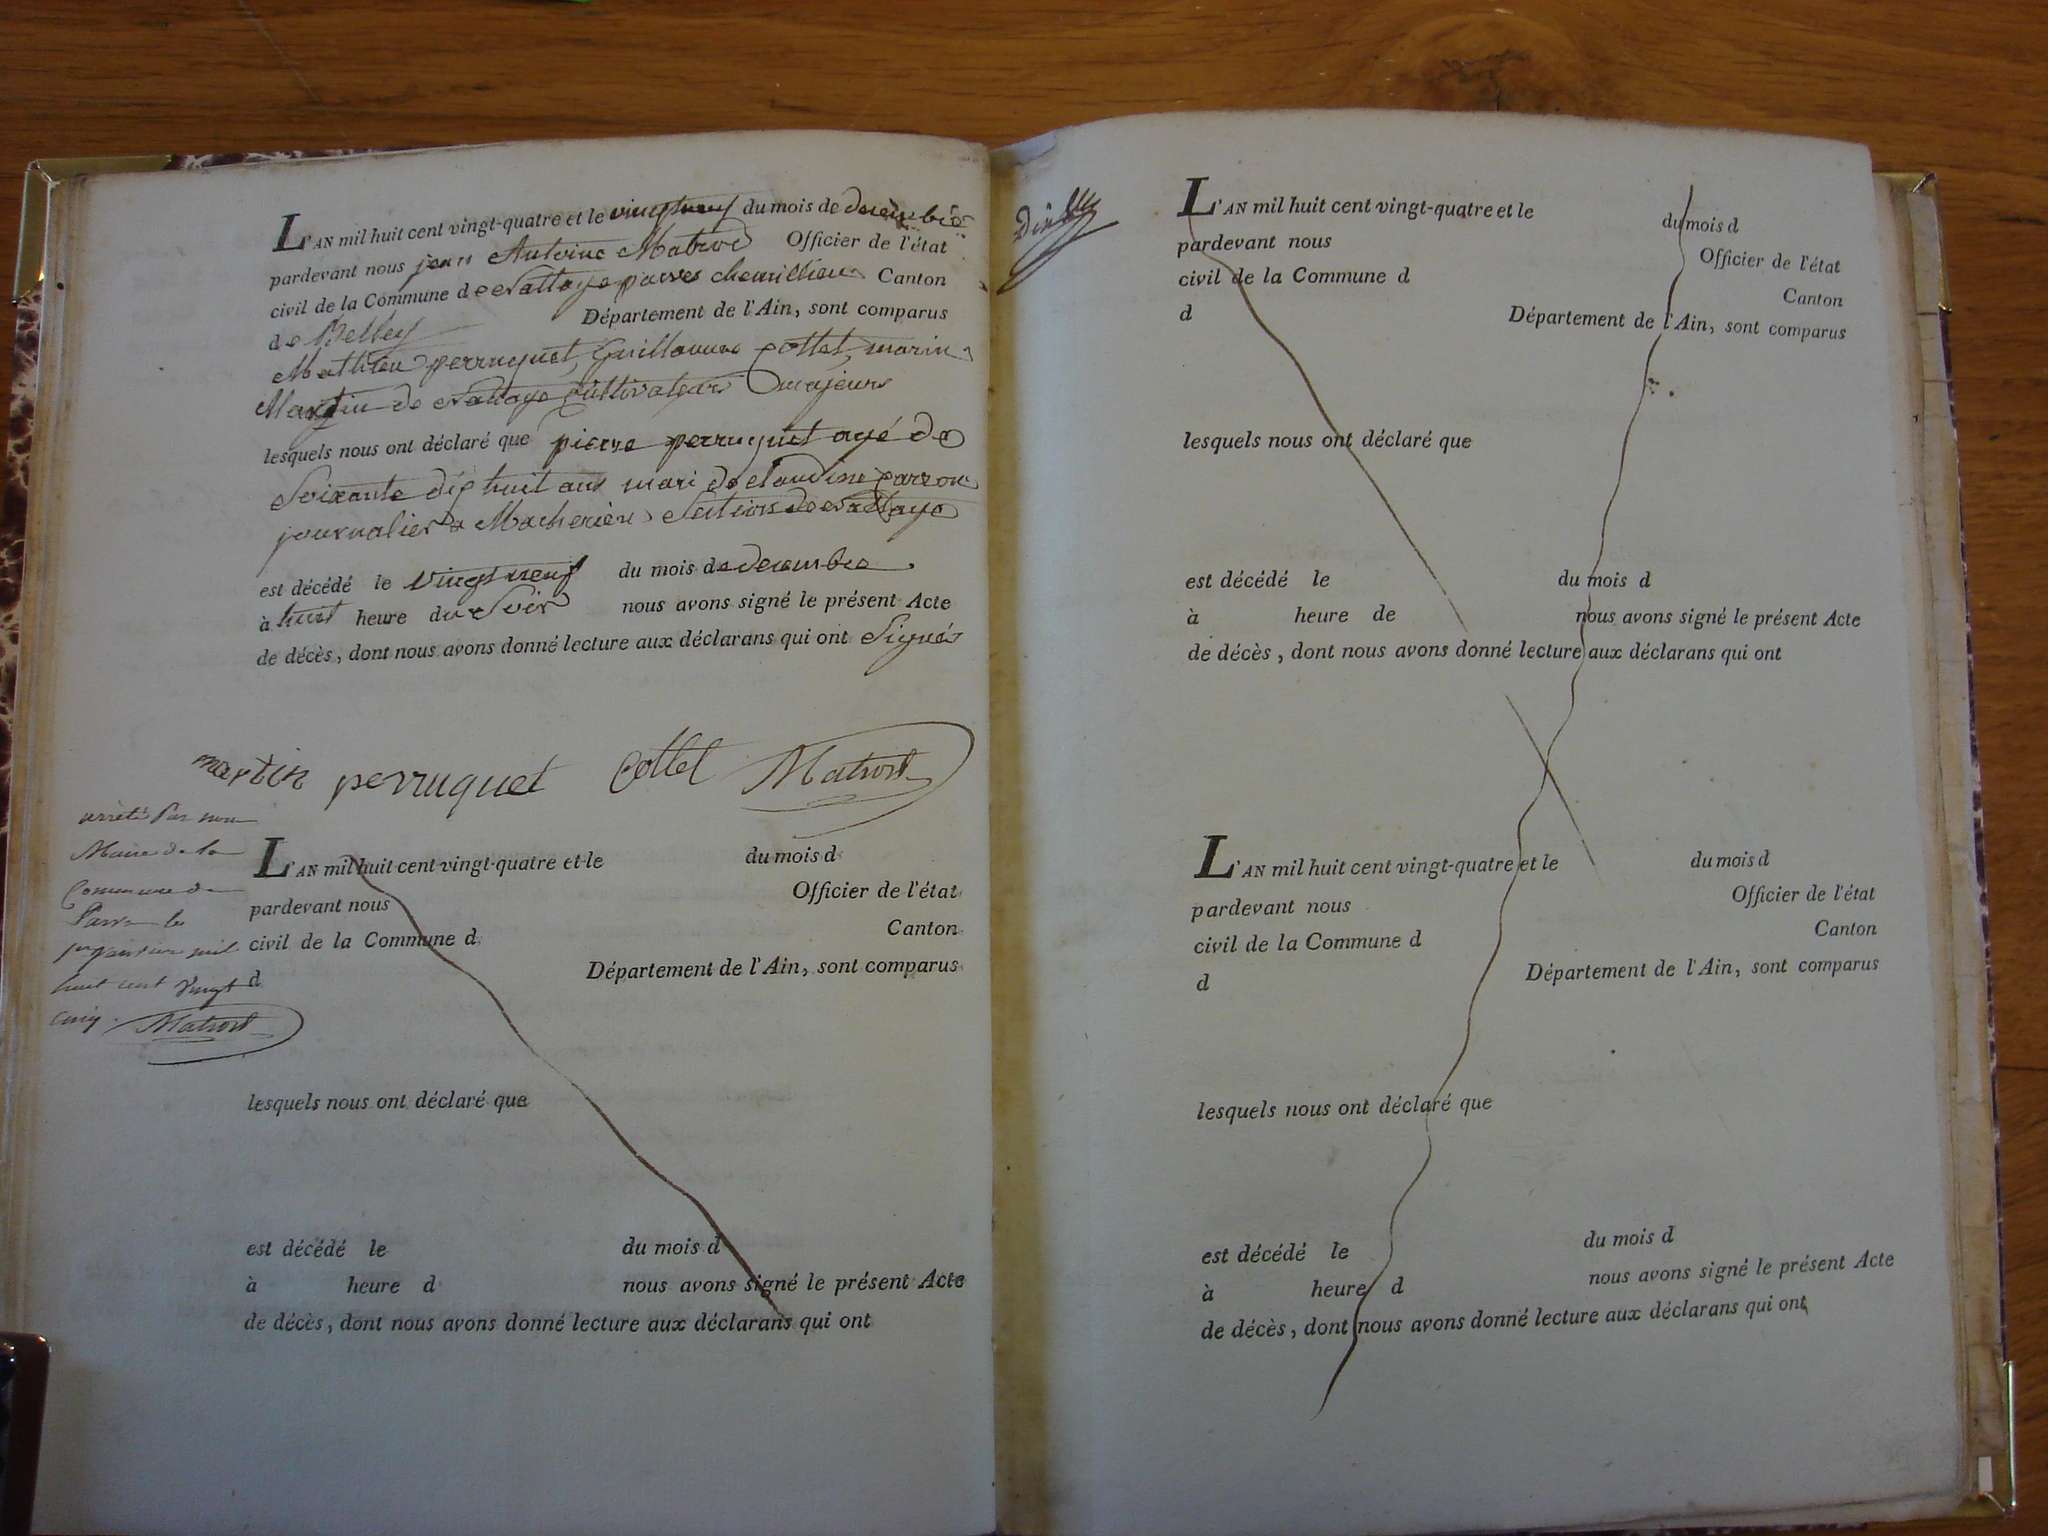 L'AN mil huit cent vingt-quatre et le vingt neuf du mois de decembre
pardevant nous jean Antoine Matrod Officier de l'état
civil de la Commune de Nattage parves chemillieu Canton
de Belley Département de l'Ain, sont comparus
Mathieu perruquet, Guillaume Cottet, marin
Martin de Nattage Cultivateurs majeurs
lesquels nous ont déclaré que pierre perruquet agé de
Soixante dix huit ans mari de claudine parron
journalier a Macherieu Section de Nattage
est décédé le vingt neuf du mois de decembre
à huit heure du Soir nous avons signé le présent Acte
de décès, dont nous avons donné lecture aux déclarans qui ont Signés
martin perruquet Cottet Matrod
arrêté Par nous
Maire de la
Commune de
Parves le
1er janvier mil
huit cent vingt
cinq. Matrod
L'AN mil huit cent vingt-quatre et le du mois d
pardevant nous Officier de l'état
civil de la Commune d Canton
d Département de l'Ain, sont comparus
lesquels nous ont déclaré que
est décédé le du mois d
à heure d nous avons signé le présent Acte
de décès, dont nous avons donné lecture aux déclarans qui ont
L'AN mil huit cent vingt-quatre et le du mois d
pardevant nous Officier de l'état
civil de la Commune d Canton
d Département de l'Ain, sont comparus
lesquels nous ont déclaré que
est décédé le du mois d
à heure de nous avons signé le présent Acte
de décès, dont nous avons donné lecture aux déclarans qui ont
L'AN mil huit cent vingt-quatre et le du mois d
pardevant nous Officier de l'état
civil de la Commune d Canton
d Département de l'Ain, sont comparus
lesquels nous ont déclaré que
est décédé le du mois d
à heure d nous avons signé le présent Acte
de décès, dont nous avons donné lecture aux déclarans qui ont